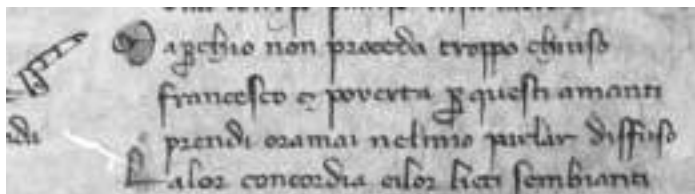 M a ꝑchio non proceda troppo chiuso
francesco ⁊ poverta ꝑ questi amanti
prendi oramai nelmio parlar diffuso
L alor concordia eilor lieti sembianti